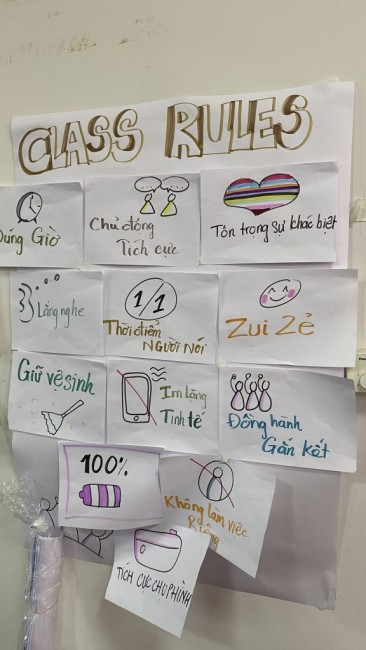 CLASS RULES
Đúng Giờ
Chủ động
Tích cực
Tôn trọng sự khác biệt
Lắng nghe
1/1
Thời điểm
NGƯỜI NÓI
Zui Zẻ
Giữ vệ sinh
Im lặng
Tinh tế
Đồng hành
Gắn kết
100%
Không làm việc
Riêng
TÍCH CỰC CHỤP HÌNH